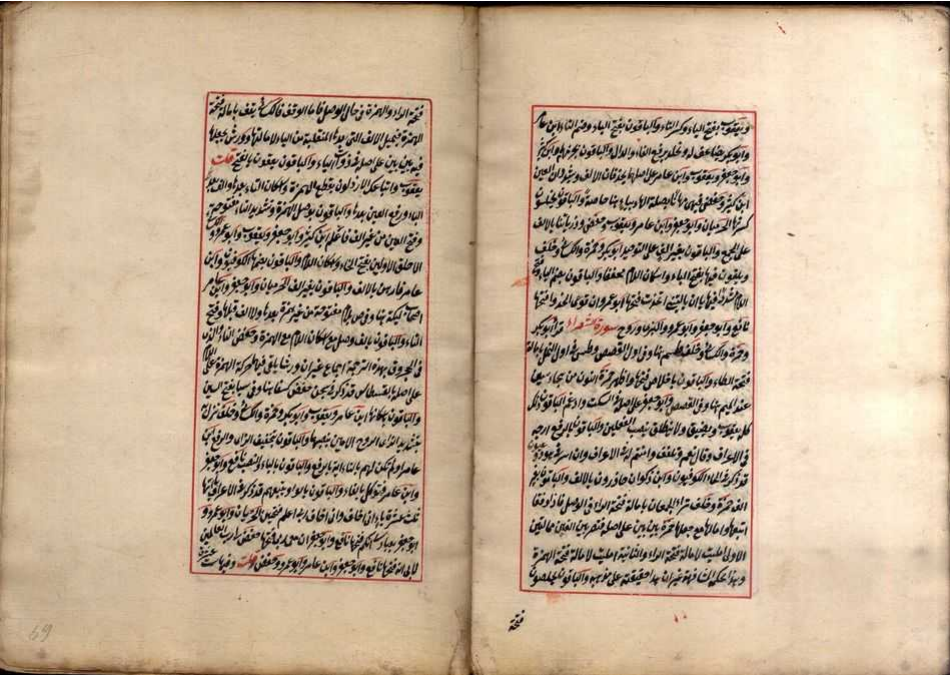 ويعقوب بفتح الياء وكسر التاء والباقون بفتح الياء وضم التاء ابن عامر
وابو بكر يضاعف له ويخلد برفع الفاء والدال والباقون بجزمهما وابن كثير
وابو جعفر ويعقوب وابن عامر على اصلهم يحذفان الالف ويشددان العين
ابن كثير وحفص فيهي مهانا بصلة الهاء بياء هنا خاصة والباقون يختلسون
كسرتها الحرميان وابو جعفر وابن عامر ويعقوب وحفص وذرياتنا بالالف
على الجمع والباقون بغير الف على التوحيد ابو بكر وحمزة والكسائي وخلف
ويلقون فيها بفتح الياء واسكان اللام مخففا والباقون بضم الياء وفتح
اللام مشددا فيها ياآن يا ليتني اتخذت فتحها ابو عمرو ان قومي اتخذوا فتحها
نافع وابو جعفر وابو عمرو والبزي وروح سورة الشعراء قرأ ابو بكر
وحمزة والكسائي وخلف طسم هنا وفي اول القصص وطس في اول النمل بامالة
فتحة الطاء والباقون باخلاص فتحها واظهر حمزة النون من هجاء سين
عند الميم هنا وفي القصص وابو جعفر على اصله في السكت وادغم الباقون ذكر
كل يعقوب ويضيق ولا ينطلق بنصب القافين والباقون بالرفع ارجه
في الاعراف وقال نعم وتلقف وامنتم في الاعراف وان اسر في هود وعيون
قد ذكر في الماء الكوفيون وابن ذكوان حاذرون بالالف والباقون بغير
الف حمزة وخلف تراءى الجمعان بامالة فتحة الراء في الوصل فاذا وقفا
اتبعاها وامالا مع جعلها همزة بين بين على اصله فتصير بين الفين ممالتين
الاولى اميلت لامالة فتحة الراء والثانية اميلت لامالة فتحة الهمزة
وبهذا المشافهة غير ان هذا حقيقته على مذهبه والباقون يخلصون
فتحة
فتحة الراء والهمزة في حال الوصل فاما الوقف فالكسائي يقف بامالة فتحة
الهمزة فيميل الالف التي بعدها المنقلبة من الياء لامالتها وورش يجعلها
فيه بين بين على اصله في ذوات الياء والباقون يقفون بالفتح قلت
يعقوب واتباعك الارذلون بقطع الهمزة واسكان التاء بعدها والف بعد
الباء ورفع العين بعدها والباقون بوصل الهمزة وتشديد التاء مفتوحة
وفتح العين من غير الف فاعلم ابن كثير وابو جعفر ويعقوب وابو عمرو والكسائي
الا خلق الاولين بفتح الخاء واسكان اللام والباقون بضمهما الكوفيون وابن
عامر فارهين بالالف والباقون بغير الف الحرميان وابو جعفر وابن عامر
اصحاب ليكة هنا وفي ص بلام مفتوحة من غير همزة بعدها ولا الف قبلها وفتح
التاء والباقون بالف وصل مع اسكان اللام مع الهمزة وخفض التاء والذي
في الحجر وق بهذه الترجمة اجماع غير ان ورشا يلقي فيهما حركة الهمزة على اللام
على اصله بالقسطاس قد ذكر في سبحن حفص كسفا هنا وفي سبا بفتح السين
والباقون باسكانها ابن عامر ويعقوب وابو بكر وحمزة والكسائي وخلف نزل به
بتشديد الزاي الروح الامين بنصبهما والباقون بتخفيف الزاي والرفع ابن
عامر اولم تكن لهم بالتاء اية بالرفع والباقون بالياء والنصب نافع وابو جعفر
وابن عامر فتوكل بالفاء والباقون بالواو يتبعهم قد ذكر في الاعراف ياآتها
ثلث عشرة ياء اني اخاف واني اخاف ربي اعلم فتحهن الحرميان وابو عمرو و
ابو جعفر بعبادي انكم فتحها نافع وابو جعفر ان معي فتحها حفص
لابي انه فتحها نافع وابو جعفر وابن عامر وابو عمرو وحفص قلت وفيها ست عشرة
69